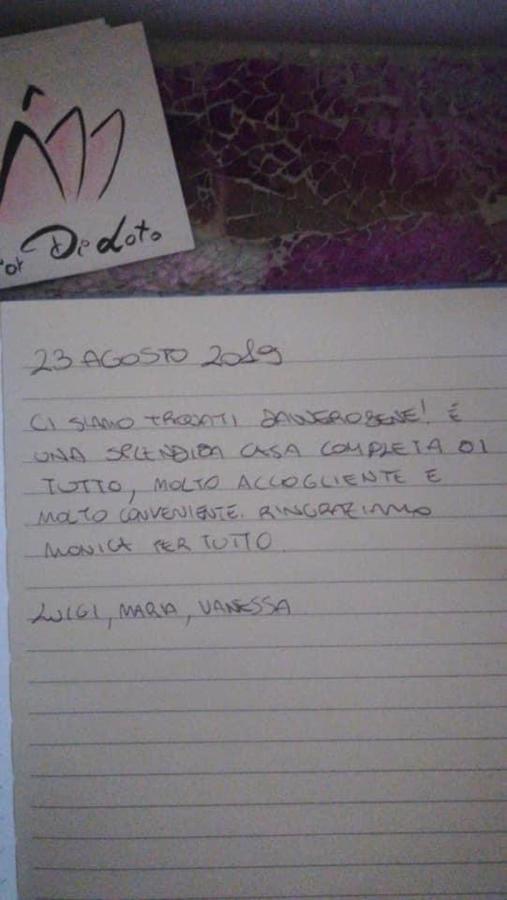 Dedoto
23 AGOSTO 2019
CI SIAMO TROVATI DAVVERO BENE! É
UNA SPLENDIDA CASA COMPLETA DI
TUTTO, MOLTO ACCOGLIENTE E
MOLTO CONVENIENTE. RINGRAZIAMO
MONICA PER TUTTO.
LUIGI, MARIA, VANESSA